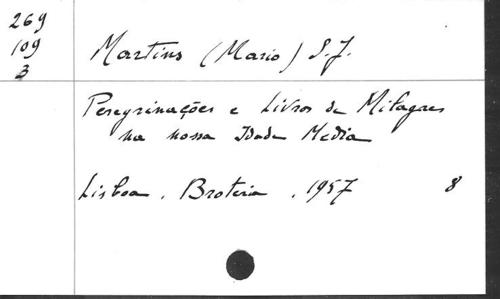 269
109
3
Martins (Mario) S.J.
Peregrinações e Livros de Milagres
na nossa Idade Media
Lisboa. Broteria. 1957 8